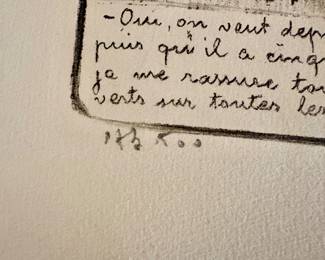 -Oui, on veut dep
puis qu'il a cinq
ja me rassure tou
verts sur toutes les
173 500